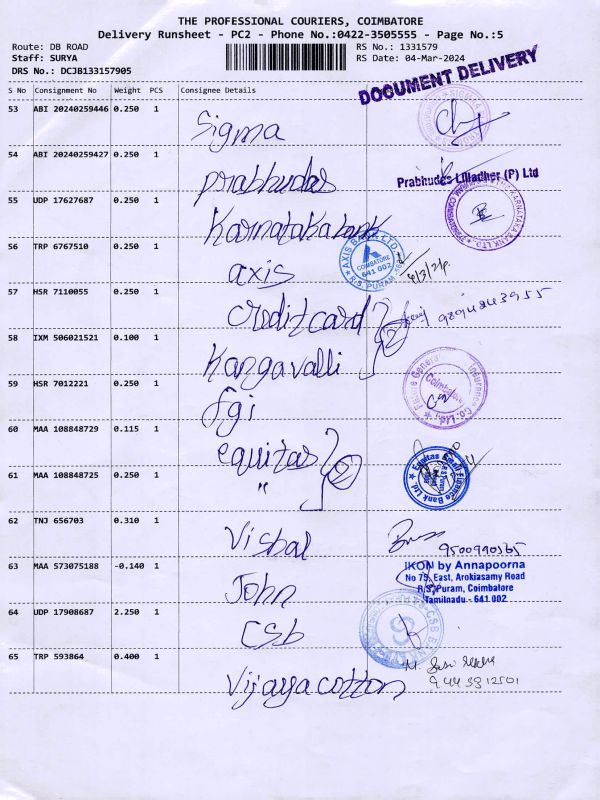 THE PROFESSIONAL COURIERS, COIMBATORE
Delivery Runsheet - PC2 - Phone No.:0422-3505555 - Page No.:5
Route: DB ROAD
Staff: SURYA
DRS No.: DCJB133157905
RS No.: 1331579
RS Date: 04-Mar-2024
DOCUMENT DELIVERY
S No Consignment No Weight PCS Consignee Details
53 ABI 20240259446 0.250 1 Sigma
54 ABI 20240259427 0.250 1 prabhudas
Prabhudas Lilladher (P) Ltd
55 UDP 17627687 0.250 1 Karnataka bank
56 TRP 6767510 0.250 1 axis
AXIS BANK LTD
COIMBATORE
641 002
R.S. PURAM
4/3/24
57 HSR 7110055 0.250 1 credit card
58 IXM 506021521 0.100 1 Kangavalli
2
59 HSR 7012221 0.250 1 fgi
Coimbatore
60 MAA 108848729 0.115 1 equitas
61 MAA 108848725 0.250 1 "
2
Equitas Small Finance Bank Ltd.
62 TNJ 656703 0.310 1 Vishal
63 MAA 573075188 -0.140 1 John
IKON by Annapoorna
No 75, East, Arokiasamy Road
R.S. Puram, Coimbatore
Tamilnadu - 641 002
64 UDP 17908687 2.250 1 CSb
CSB BANK
65 TRP 593864 0.400 1 Vijaya cotton